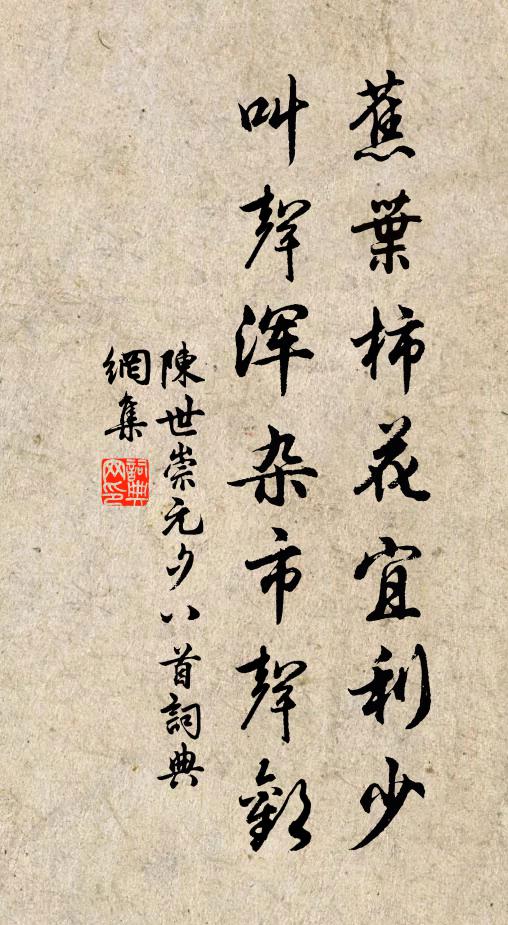 蕉葉柿花宜利少
叫聲浑杂市聲歡
陳世崇元夕八首詞典
網集
詞典
网印